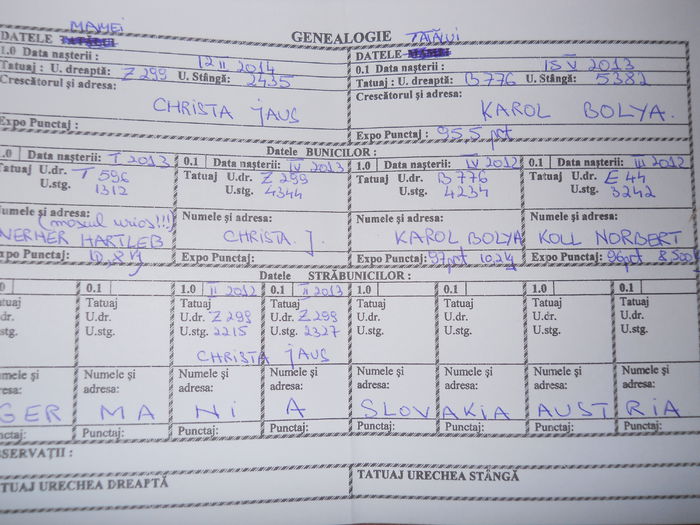 MAMEI
GENEALOGIE TATĂLUI
DATELE
DATELE
1.0 Data nașterii : 12 II 2014
0.1 Data nașterii : 15 V 2013
Tatuaj : U. dreaptă: Z 299 U. Stângă: 2435
Tatuaj : U. dreaptă: B776 U. Stângă: 5382
Crescătorul și adresa:
Crescătorul și adresa:
CHRISTA JAUS
KAROL BOLYA.
Expo Punctaj :
Expo Punctaj : 95.5 pct
Datele BUNICILOR :
.0 Data nașterii: I 2013
0.1 Data nașterii: IV 2013
1.0 Data nașterii: IV 2012
0.1 Data nașterii: III 2012
Tatuaj U.dr. T 596
Tatuaj U.dr. Z 299
Tatuaj U.dr. B 776
Tatuaj U.dr. E 44
U.stg. 1312
U.stg. 4344
U.stg. 4234
U.stg. 3242
Numele și adresa:
Numele și adresa:
Numele și adresa:
Numele și adresa:
(mosul urios!!!)
WERNER HARTLEB
CHRISTA J.
KAROL BOLYA
KOLL NORBERT
xpo Punctaj: 10,8 kg
Expo Punctaj:
Expo Punctaj: 97pct 10,2 kg
Expo Punctaj: 96pct 8,500 k
Datele STRĂBUNICILOR :
0 0.1 1.0 II 2012 0.1 II 2013 1.0 0.1 1.0 0.1
atuaj Tatuaj Tatuaj Tatuaj Tatuaj Tatuaj Tatuaj Tatuaj
.dr. U.dr. U.dr. Z 299 U.dr. Z 299 U.dr. U.dr. U.dr. U.dr.
.stg. U.stg. U.stg. 2215 U.stg. 2327 U.stg. U.stg. U.stg. U.stg.
CHRISTA JAUS
umele și Numele și Numele și Numele și Numele și Numele și Numele și Numele și
resa: adresa: adresa: adresa: adresa: adresa: adresa: adresa:
GERMANIA SLOVAKIA AUSTRIA
nctaj: Punctaj: Punctaj: Punctaj: Punctaj: Punctaj: Punctaj: Punctaj:
SERVAȚII :
TUAJ URECHEA DREAPTĂ
TATUAJ URECHEA STÂNGĂ